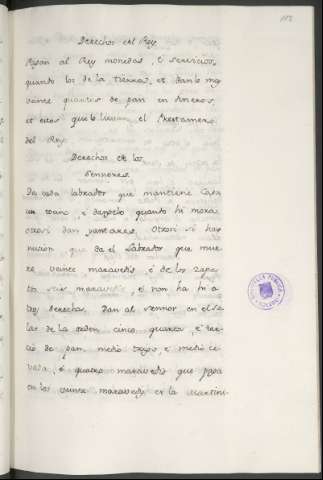 113
Derechos del Rey
Pagan al Rey monedas, é servicios,
quando los de la tierra, et danle mas
veinte quartas de pan en Amexos,
et estos que lo lievan el Prestamero
del Rey.
Derechos de los
Sennores.
Da cada labrador que mantiene Casa
un tocino, é danselo quanto hi mora
otrosi dan yantares. Otrosi si han
nusion que da el Labrador que mue
re veinte maravedis, é de los zapa
tos seis maravedis, é non ha hi o
tros derechos, dan al sennor en el so
lar de la orden cinco quartas, é ter
cio de pan, medio trigo, é medio ce
vada, é quatro maravedis que paga
en los veinte maravedis de la Martini